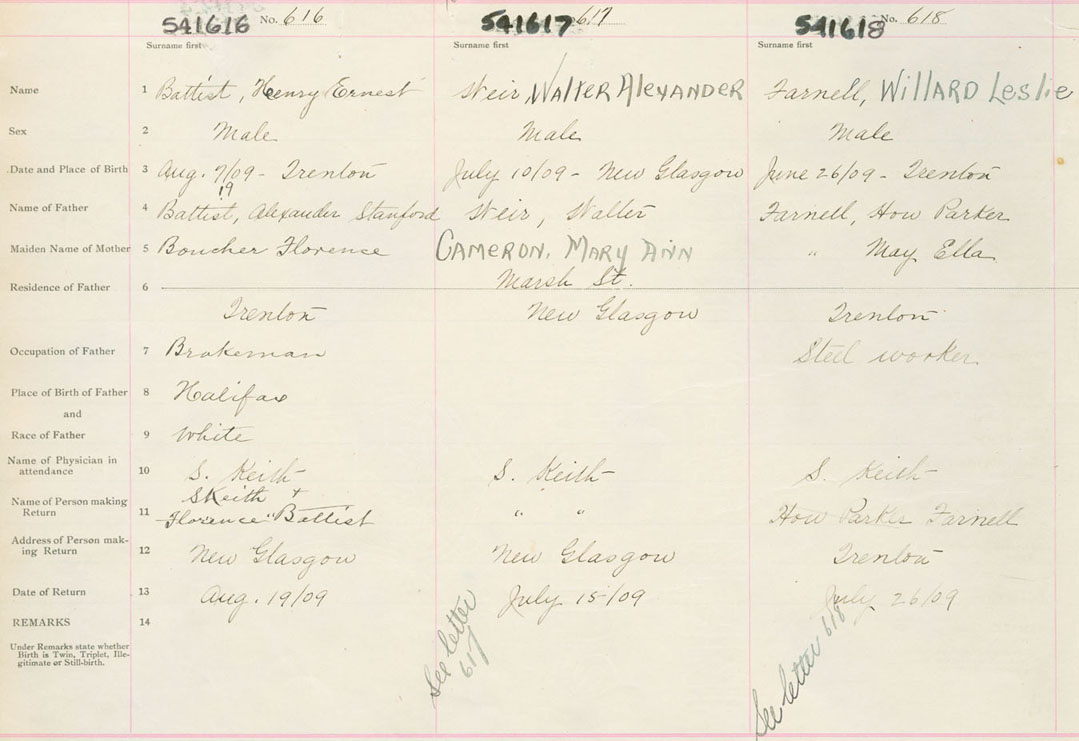 541616 No. 616 541617 617 541618 No. 618
Surname first Surname first Surname first
Name 1 Battist, Henry Ernest Weir, Walter Alexander Farnell, Willard Leslie
Sex 2 Male Male Male
Date and Place of Birth 3 Aug. 7/09 - Trenton July 10/09 - New Glasgow June 26/09 - Trenton
19
Name of Father 4 Battist, Alexander Stanford Weir, Walter Farnell, How Parker
Maiden Name of Mother 5 Boucher Florence CAMERON, MARY ANN " May Ella
Residence of Father 6 Marsh St.
Trenton New Glasgow Trenton
Occupation of Father 7 Brakeman Steel worker
Place of Birth of Father 8 Halifax
and
Race of Father 9 White
Name of Physician in
attendance 10 S. Keith S. Keith S. Keith
Name of Person making
Return 11 S Keith +
Florence " Battist " " How Parker Farnell
Address of Person mak-
ing Return 12 New Glasgow New Glasgow Trenton
Date of Return 13 Aug. 19/09 July 15/09 July 26/09
REMARKS 14
Under Remarks state whether
Birth is Twin, Triplet, Ille-
gitimate or Still-birth.
See letter
617
See letter 618